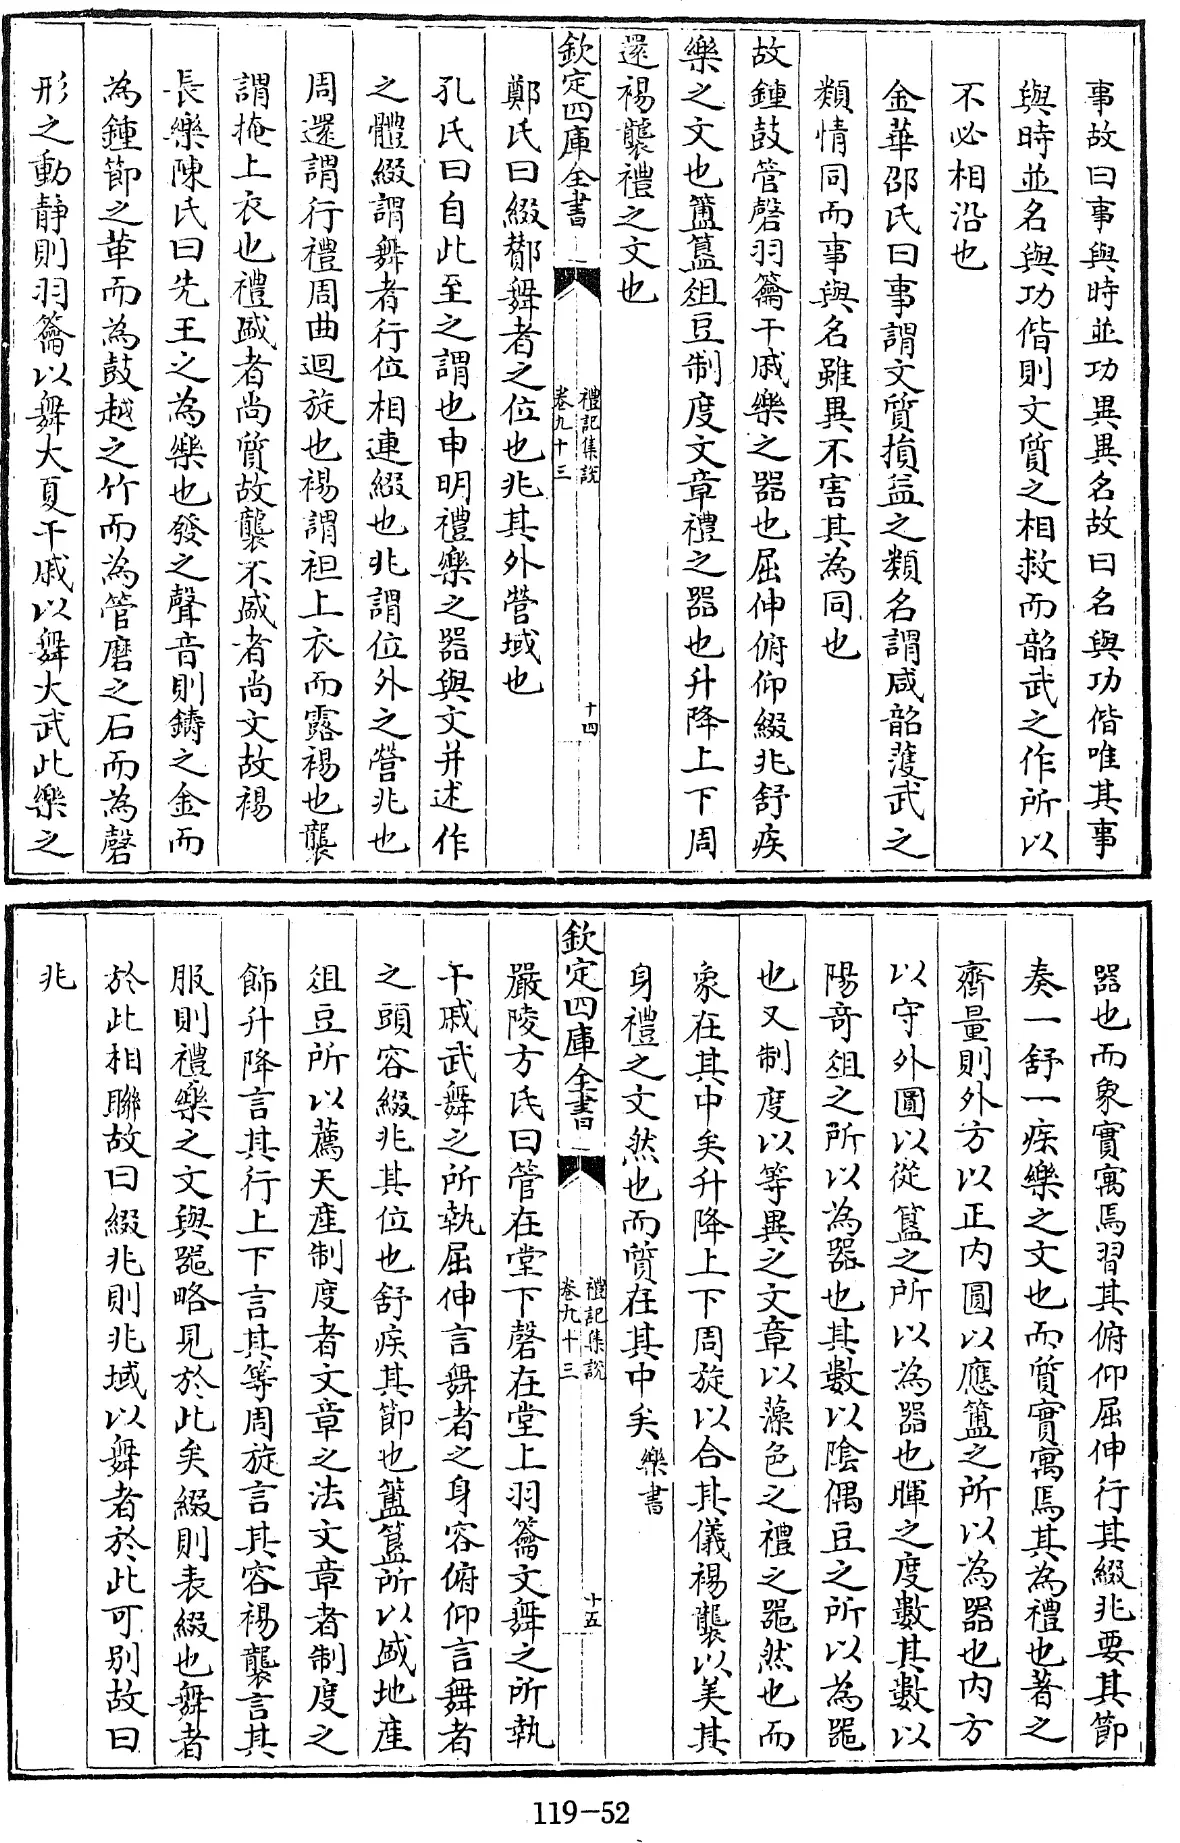 事故曰事與時並功異異名故曰名與功偕唯其事
與時並名與功偕則文質之相救而韶武之作所以
不必相沿也
金華邵氏曰事謂文質損益之類名謂咸韶濩武之
類情同而事與名雖異不害其為同也
故鍾鼓管磬羽籥干戚樂之器也屈伸俯仰綴兆舒疾
樂之文也簠簋俎豆制度文章禮之器也升降上下周
還裼襲禮之文也
欽定四庫全書
禮記集說
卷九十三
十四
鄭氏曰綴酇舞者之位也兆其外營域也
孔氏曰自此至之謂也申明禮樂之器與文并述作
之體綴謂舞者行位相連綴也兆謂位外之營兆也
周還謂行禮周曲迴旋也裼謂袒上衣而露裼也襲
謂掩上衣也禮盛者尚質故襲不盛者尚文故裼
長樂陳氏曰先王之為樂也發之聲音則鑄之金而
為鍾節之革而為鼓越之竹而為管磨之石而為磬
形之動靜則羽籥以舞大夏干戚以舞大武此樂之
器也而象實寓焉習其俯仰屈伸行其綴兆要其節
奏一舒一疾樂之文也而質實寓焉其為禮也著之
齊量則外方以正内圓以應簠之所以為器也内方
以守外圓以從簋之所以為器也暉之度數其數以
陽奇俎之所以為器也其數以陰偶豆之所以為器
也又制度以等異之文章以藻色之禮之器然也而
象在其中矣升降上下周旋以合其儀裼襲以美其
身禮之文然也而質在其中矣樂書
欽定四庫全書
禮記集說
卷九十三
十五
嚴陵方氏曰管在堂下磬在堂上羽籥文舞之所執
干戚武舞之所執屈伸言舞者之身容俯仰言舞者
之頭容綴兆其位也舒疾其節也簠簋所以盛地產
俎豆所以薦天產制度者文章之法文章者制度之
飾升降言其行上下言其等周旋言其容裼襲言其
服則禮樂之文與器略見於此矣綴則表綴也舞者
於此相聯故曰綴兆則兆域以舞者於此可別故曰
兆
119-52